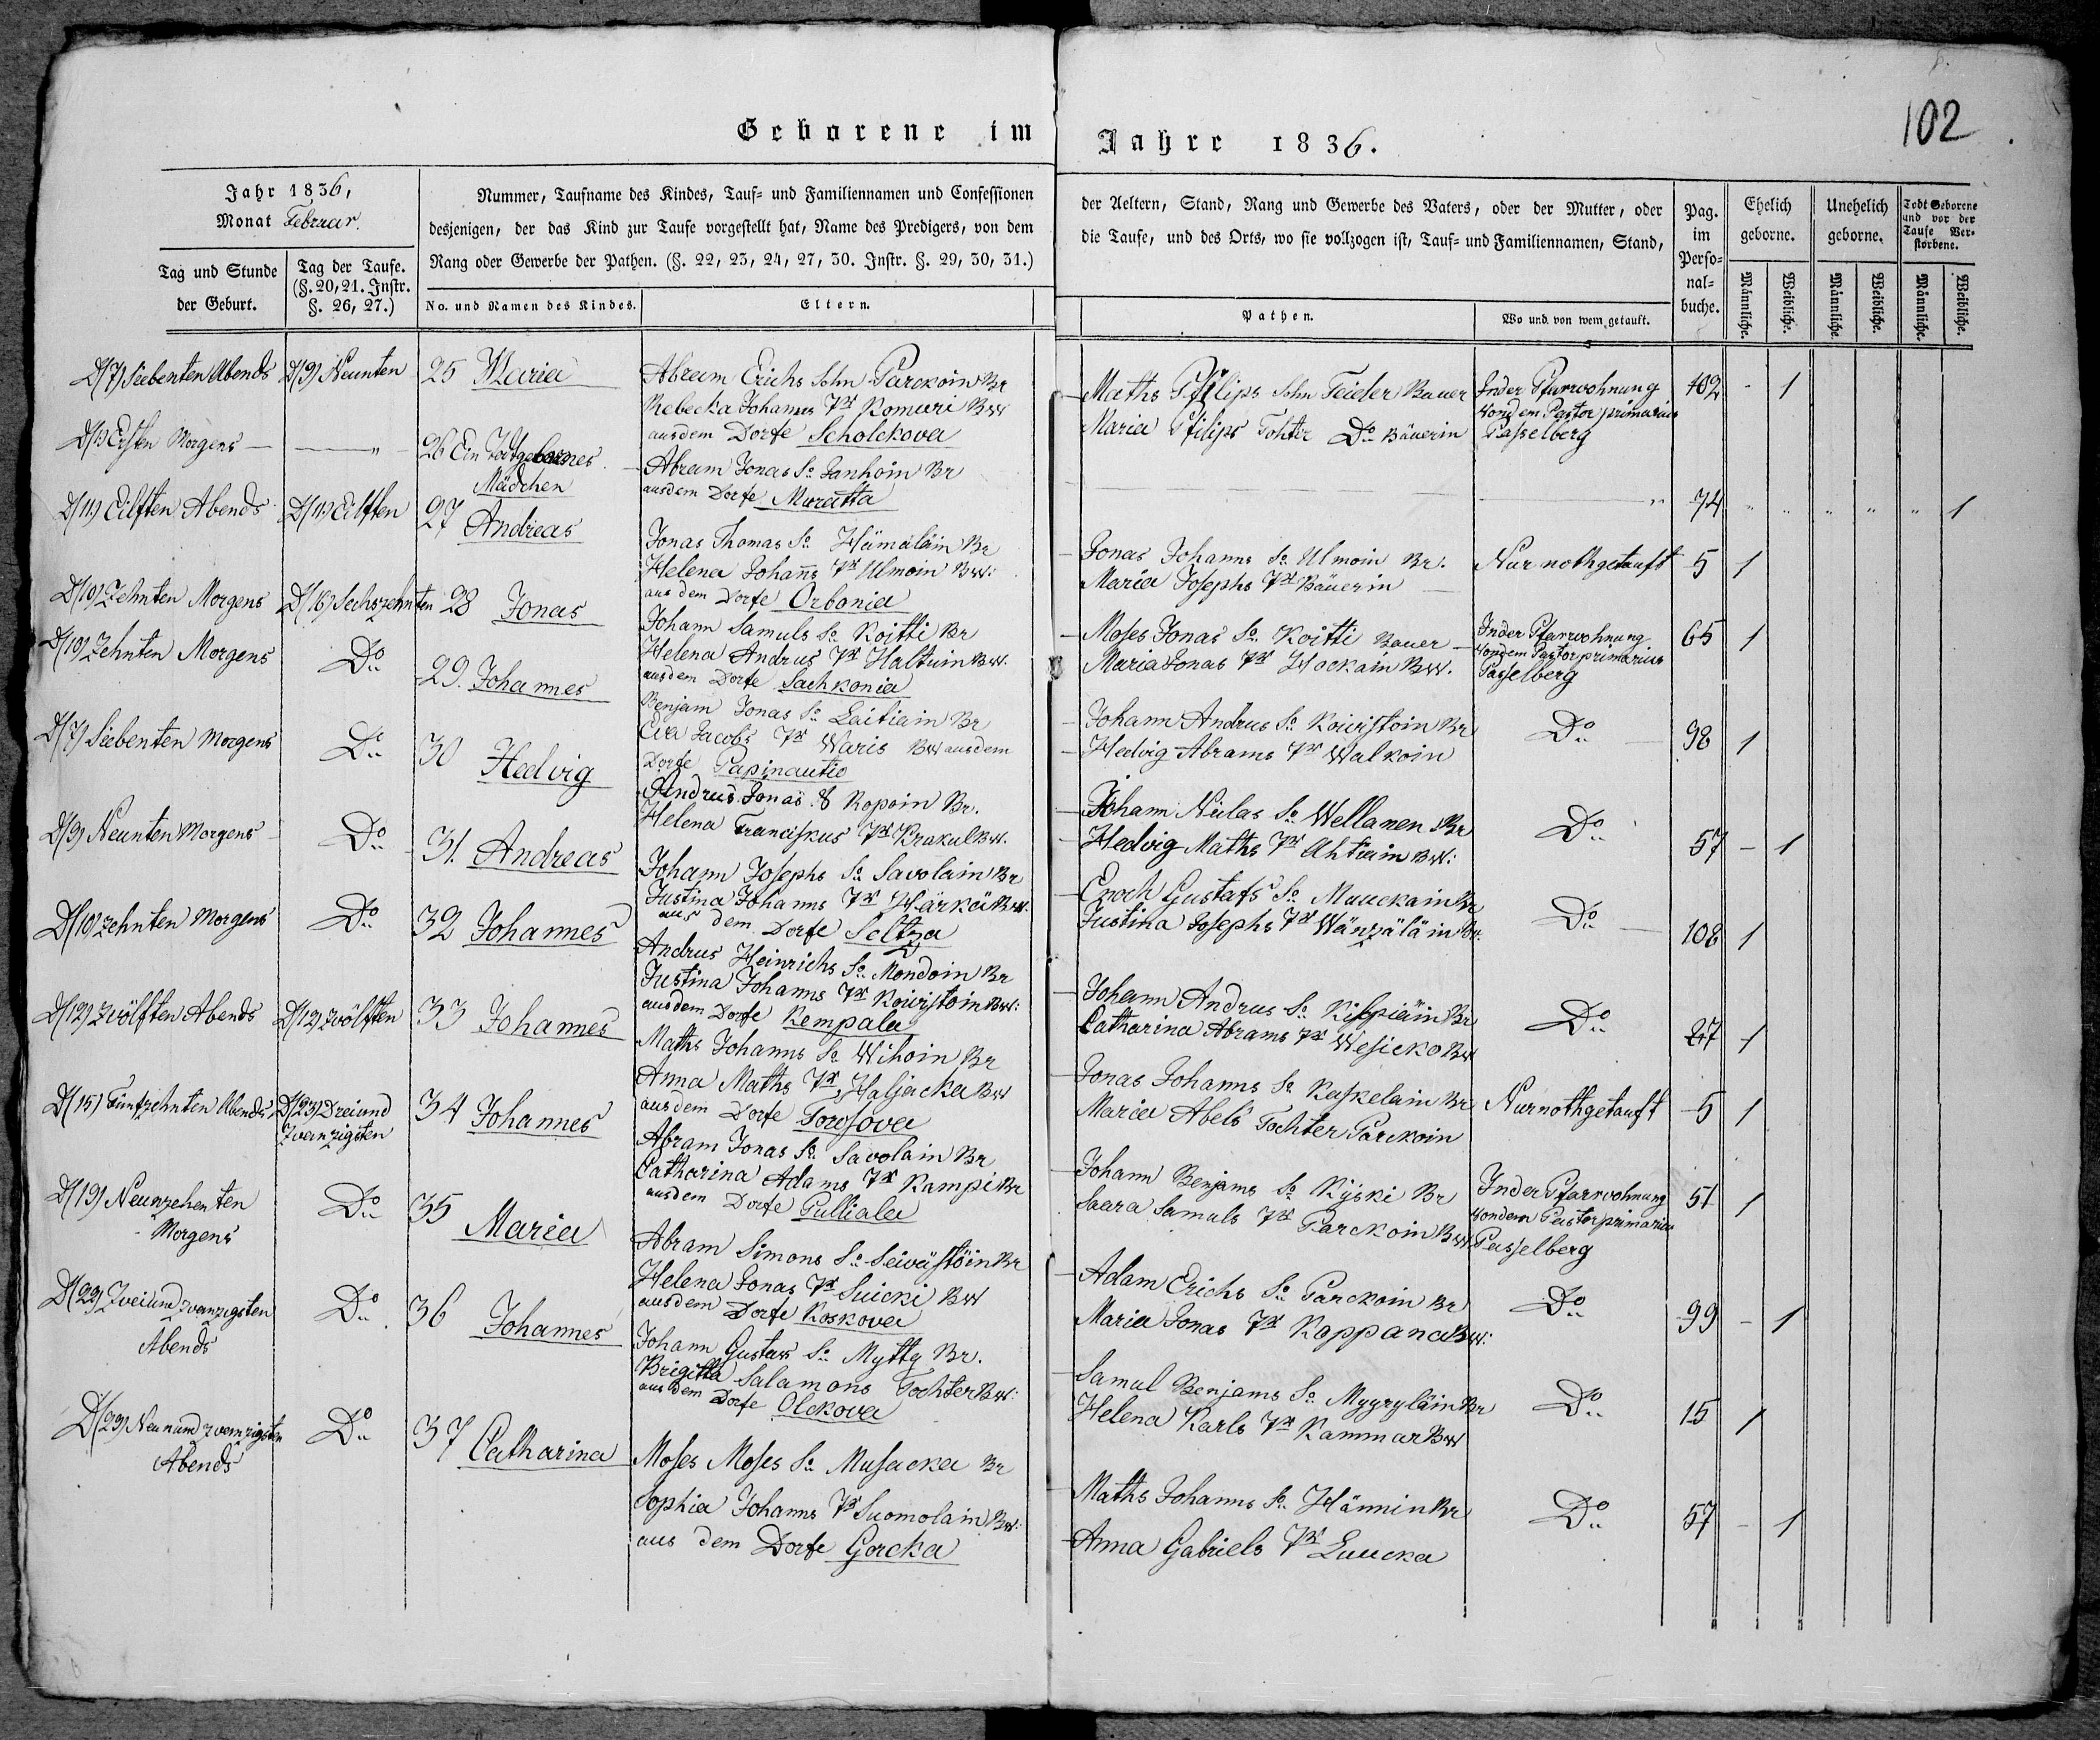 102
Geborene im Jahre 1836.
Jahr 1836,
Monat Februar.
Tag und Stunde
der Geburt.
Tag der Taufe.
(§. 20, 21. Instr.
§. 26, 27.)
Nummer, Taufname des Kindes, Tauf- und Familiennamen und Confessionen
desjenigen, der das Kind zur Taufe vorgestellt hat, Name des Predigers, von dem
Rang oder Gewerbe der Pathen. (§. 22, 23, 24, 27, 30. Instr. §. 29, 30, 31.)
No. und Namen des Kindes.
Eltern.
der Aeltern, Stand, Rang und Gewerbe des Vaters, oder der Mutter, oder
die Taufe, und des Orts, wo sie vollzogen ist, Tauf- und Familiennamen, Stand,
Pathen.
Wo und von wem getauft.
Pag.
im
Perso-
nal-
buche.
Ehelich
geborne.
Unehelich
geborne.
Todt Geborene
und vor der
Taufe Ver-
storbene.
Männliche.
Weibliche.
Männliche.
Weibliche.
Männliche.
Weibliche.
D(7) Siebenten Abends D(9) Neunten 25 Maria
Abram Erichs Sohn Parckoin Br
Rebecka Johanns Tr Komuri BW
aus dem Dorfe Scholckova
Maths Pfilips Sohn Teider Bauer
Maria Pfilips Tohter Do Bäuerin
In der Pfarrwohnung
Von dem Pastor primarius
Passelberg
102 - 1
D(1) Ersten Morgens — — " — 26 Ein Todtgebornes
Mädchen
Abram Jonas So Janhoin Br
aus dem Dorfe Muratta
74 " " " " " 1
D(11) Eilften Abends D(11) Eilften 27 Andreas
Jonas Thomas So Hämäläin Br
Helena Johanns Tr Ulmoin BW:
aus dem Dorfe Orbonia
Jonas Johanns So Ulmoin Br.
Maria Josephs Tr Bäuerin
Nur nothgetauft 5 1
D(10) Zehnten Morgens D(16) Sechszehnten 28 Jonas
Johann Samuls So Koitti Br
Helena Andrus Tr Haltuin BW.
aus dem Dorfe Sachkonia
Moses Jonas So Koitti Bauer
Maria Jonas Tr Hockain BW.
In der Pfarrwohnung
Von dem Pastor primarius
Passelberg
65 1
D(10) Zehnten Morgens Do 29. Johannes
Benjam Jonas So Laitiain Br
Eva Jacobs Tr Waris BW aus dem
Dorfe Papinautio
Johann Andrus So Koivistoin Br
Hedvig Abrams Tr Walkoin
Do 98 1
D(7) Siebenten Morgens Do 30 Hedvig
Andrus Jonas S Kopoin Br.
Helena Franciskus Tr Krakul BW.
Johann Nielas So Wellanen Br
Hedvig Maths Tr Ahtiain BW:
Do 57 - 1
D(9) Neunten Morgens Do 31. Andreas
Johann Josephs So Savolain Br
Justina Johanns Tr Härkä BW.
aus dem Dorfe Seltza
Enoch Gustafs So Muuckain Br
Justina Josephs Tr Wänzäläin
Do 108 1
D(10) zehnten Morgens Do 32 Johannes
Andrus Heinrichs So Mondoin Br
Justina Johanns Tr Koivistoin BW:
aus dem Dorfe Kempala
Johann Andrus So Kispiäin Br
Catharina Abrams Tr Wesicko BW
Do 27 1
D(12) Zwölften Abends D(12) Zwölften 33 Johannes
Maths Johanns So Wihoin Br
Anna Maths Tr Haljacka BW
aus dem Dorfe Torosova
Jonas Johanns So Kaskelain Br
Maria Abels Tochter Parckoin
Nur nothgetauft 5 1
D(15) Fünfzehnten Abends D(23) Dreiund
Zwanzigsten
34 Johannes
Abram Jonas So Savolain Br
Catharina Adams Tr Kampi Br
aus dem Dorfe Pulliala
Johann Benjams So Kyski Br
Saara Samuls Tr Parckoin BW
In der Pfarrwohnung
Von dem Pastor primarius
Passelberg
51 1
D(19) Neunzehenten
Morgens
Do 35 Maria
Abram Simons So Seivästöin Br
Helena Jonas Tr Suicki BW
aus dem Dorfe Koskova
Adam Erichs So Parckoin Br
Maria Jonas Tr Koppana BW:
Do 99 - 1
D(22) Zweiund zwanzigsten
Abends
Do 36 Johannes
Johann Gustavs So Mytty Br.
Brigitta Salamons Tochter BW:
aus dem Dorfe Olckova
Samul Benjams So Myyryläin Br
Helena Karls Tr Kammar BW
Do 15 1
D(29) Neunund zwanzigsten
Abends
Do 37 Catharina
Moses Moses So Musacka Br
Sophia Johanns Tr Suomolain BW:
aus dem Dorfe Gorcka
Maths Johanns So Hännin Br
Anna Gabriels Tr Luucka
Do 57 - 1